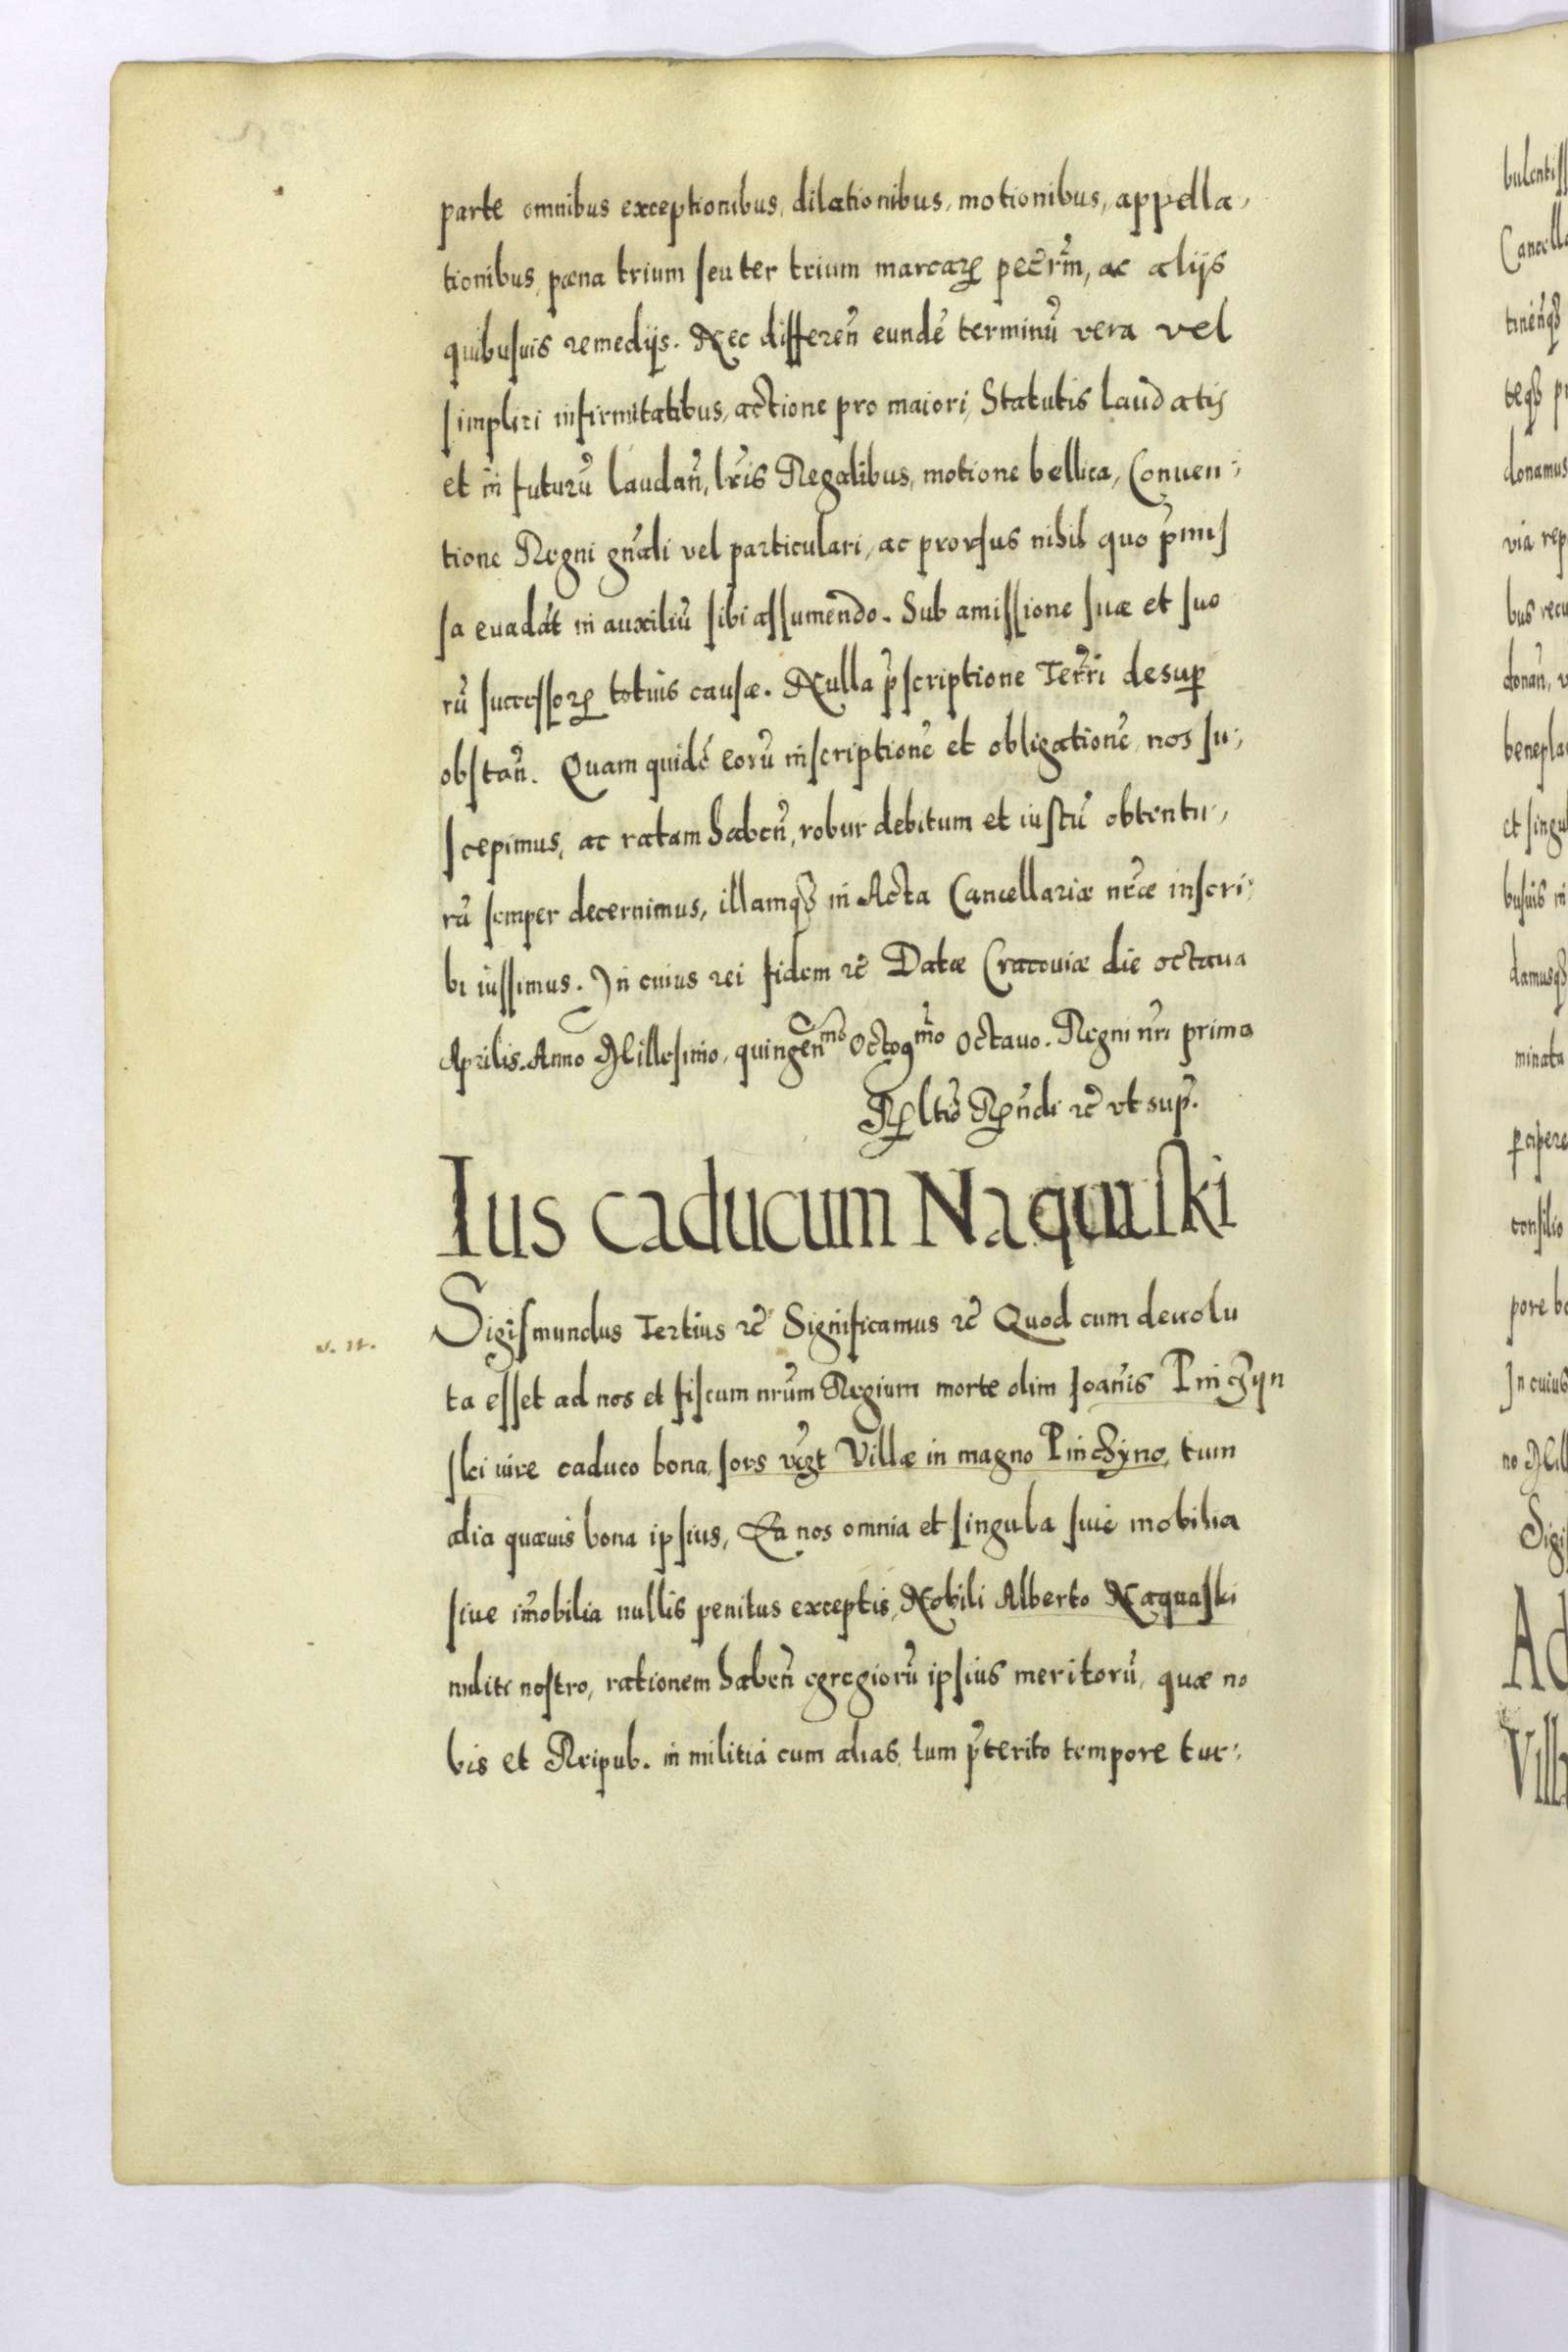 parte omnibus exceptionibus, dilationibus, motionibus, appella,
tionibus, pæna trium seu ter trium marcaꝝ pec̄rm̄, ac alijs
quibusuis remedijs. Nec differen̄ eundē terminū vera vel
simplici infirmitatibus, actione pro maiori, Statutis laudatis
et in futurū laudan̄, lr̄is Regalibus, motione bellica, Conuen-
tione Regni gn̄ali vel particulari, ac prorsus nihil quo p̄mis
sa euadāt in auxiliū sibi assumendo. Sub amissione suæ et suo
rū successoꝝ totius causæ. Nulla p̄scriptione Terr̄i desuꝑ
obstan̄. Quam quidē eorū inscriptionē et obligationē nos su-
scepimus, ac ratam haben̄, robur debitum et iustū obtentu-
rā semper decernimus, illamqꝫ in Acta Cancellariæ nr̄æ inscri-
bi iussimus. In cuius rei fidem ꝛc̄ Datæ Cracouiæ die octaua
Aprilis. Anno Millesimo, quingen̄mo Octogmo Octauo. Regni nr̄i primo
ltio ndi ꝛc̄ vt sup̄.
Ius caducum Naquaski
Sigismundus Tertius ꝛc̄ Significamus ꝛc̄ Quod cum deuolu
ta esset ad nos et fiscum nrūm Regium morte olim Joan̄is Pinchyn
ski iure caduco bona, sors v̄gt Villæ in magno Pinchyno, tum
alia quæuis bona ipsius, Ea nos omnia et singula siue mobilia
siue im̄obilia nullis penitus exceptis, Nobili Alberto Naquaski
militi nostro, rationem haben̄ egregiorū ipsius meritorū, quæ no
bis et Reipub. in militia cum alias, tum p̄terito tempore tur-